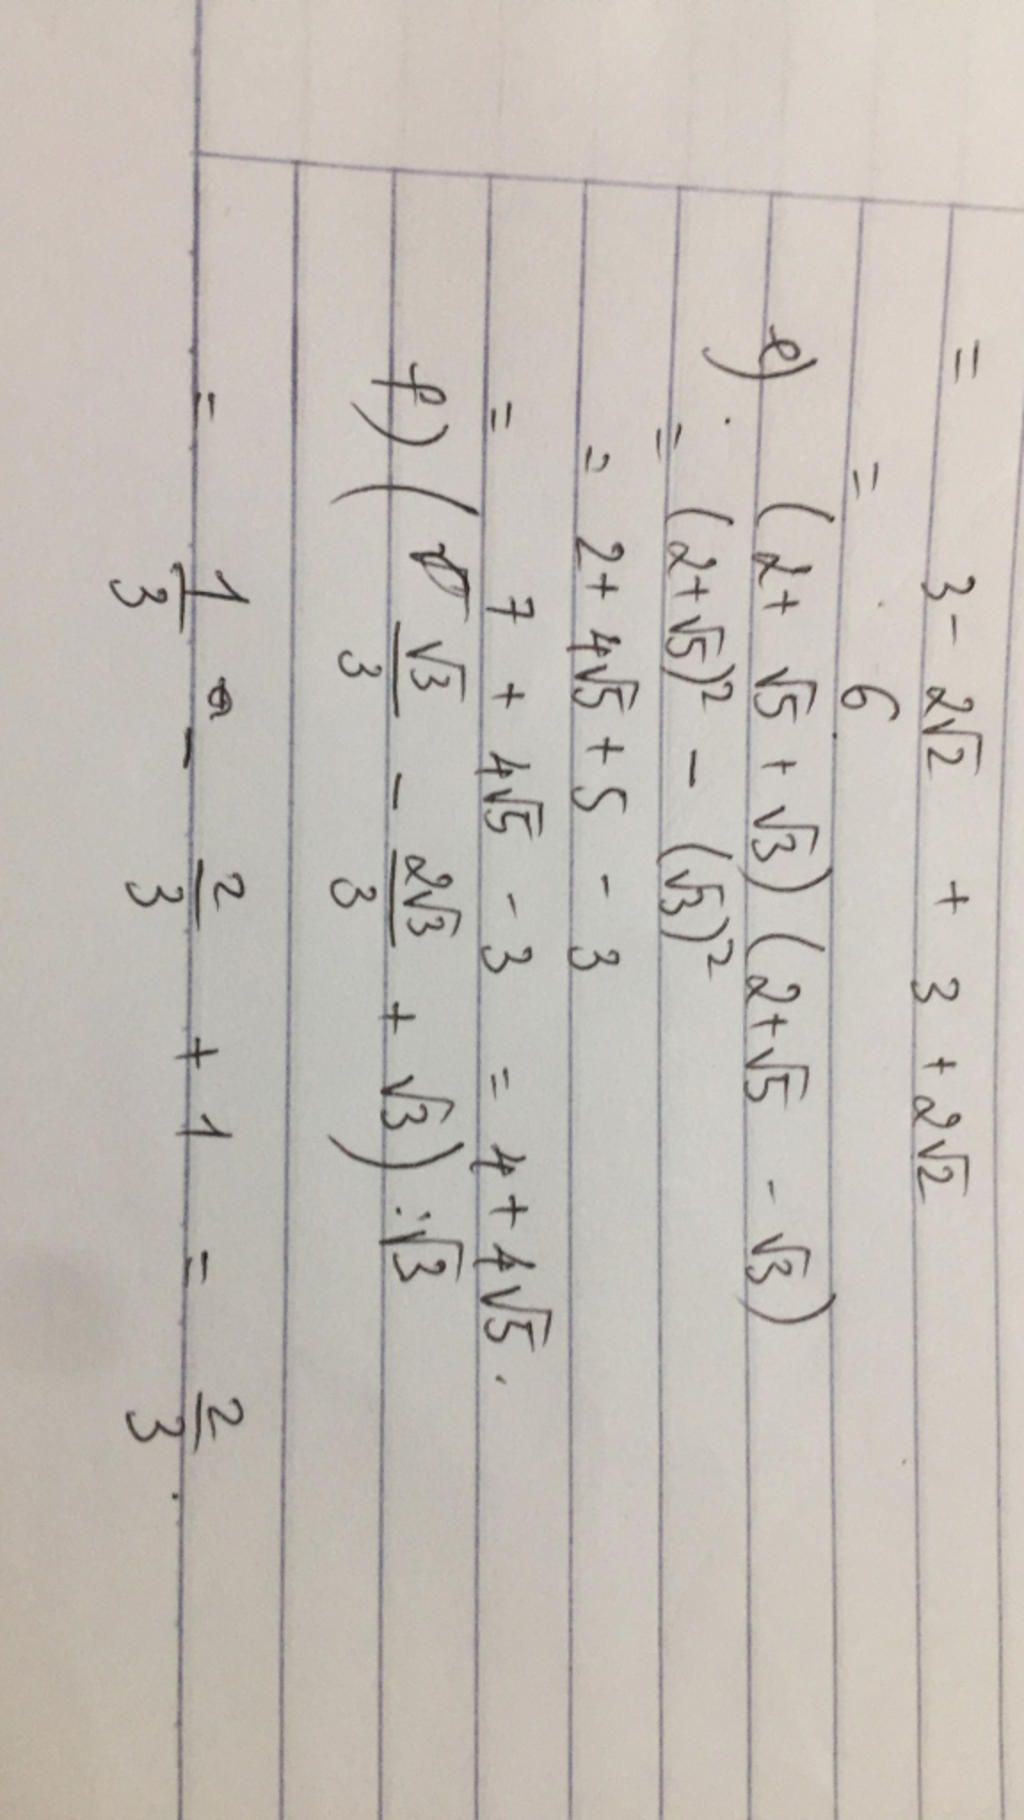 = 3 - 2√2 + 3 + 2√2
= 6
e) (2 + √5 + √3) (2 + √5 - √3)
= (2 + √5)² - (√3)²
= 2 + 4√5 + 5 - 3
= 7 + 4√5 - 3 = 4 + 4√5.
f) (√3/3 - 2√3/3 + √3) : √3
= 1/3 - 2/3 + 1 = 2/3.